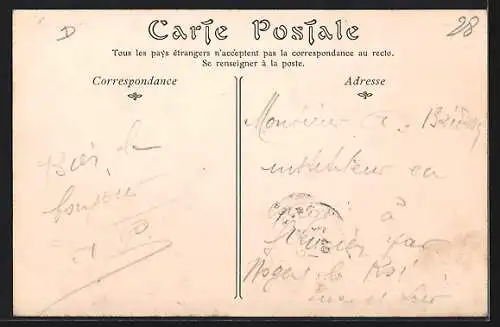 D
28
Carte Postale
Tous les pays étrangers n'acceptent pas la correspondance au recto.
Se renseigner à la poste.
Correspondance
Adresse
Bien le
bonjour
P.
Monsieur A.
instituteur en
à
par
Nogent le Roi
Eure et Loir